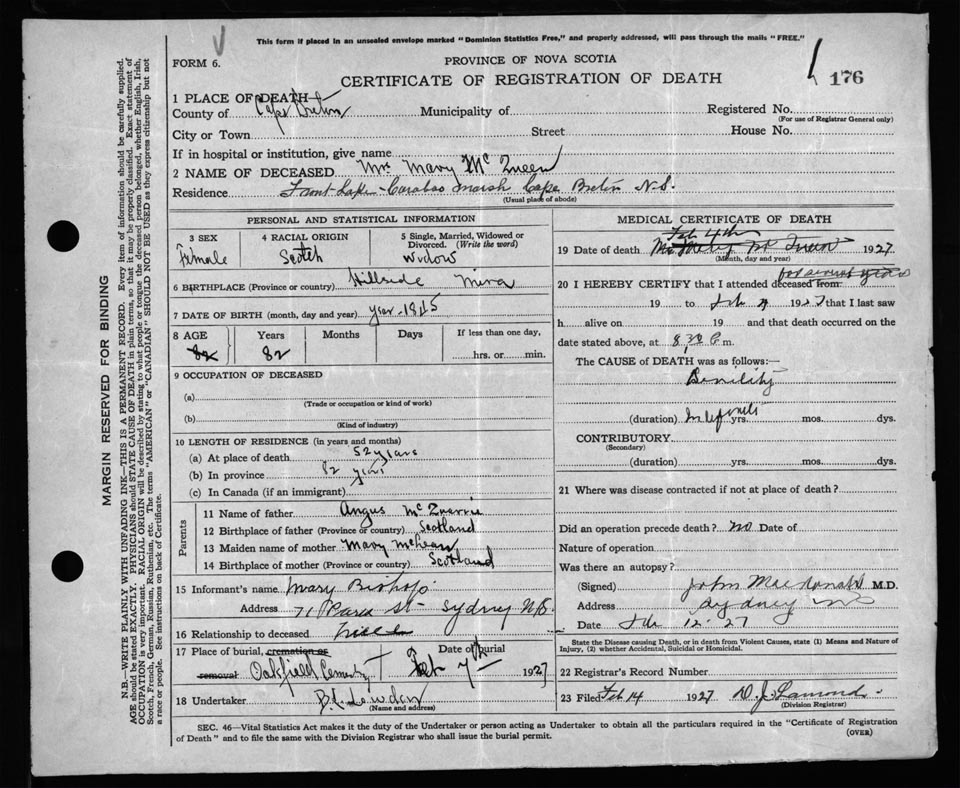 This form if placed in an unsealed envelope marked "Dominion Statistics Free," and properly addressed, will pass through the mails "FREE."
FORM 6.
PROVINCE OF NOVA SCOTIA
CERTIFICATE OF REGISTRATION OF DEATH
176
1 PLACE OF DEATH
County of Cape Breton Municipality of Registered No.
(For use of Registrar General only)
City or Town Street House No.
If in hospital or institution, give name
2 NAME OF DECEASED Mrs Mary McQueen
Residence Lake Caraboo Marsh Cape Breton N.S.
(Usual place of abode)
PERSONAL AND STATISTICAL INFORMATION
3 SEX Female
4 RACIAL ORIGIN Scotch
5 Single, Married, Widowed or Divorced. (Write the word) Widow
6 BIRTHPLACE (Province or country) Hillside Mira
7 DATE OF BIRTH (month, day and year) year-1845
8 AGE 82
Years 82
Months
Days
If less than one day,
hrs. or min.
9 OCCUPATION OF DECEASED
(a)
(Trade or occupation or kind of work)
(b)
(Kind of industry)
10 LENGTH OF RESIDENCE (in years and months)
(a) At place of death 52 years
(b) In province 82 years
(c) In Canada (if an immigrant)
Parents
11 Name of father Angus McQuarrie
12 Birthplace of father (Province or country) Scotland
13 Maiden name of mother Mary McLean
14 Birthplace of mother (Province or country) Scotland
15 Informant's name Mary Bishop
Address 71 St Sydney
16 Relationship to deceased
17 Place of burial, cremation or removal Oakfield Cemetery
Date of burial Feb 7th 1927
18 Undertaker
(Name and address)
MEDICAL CERTIFICATE OF DEATH
Feb 4th
19 Date of death 1927.
(Month, day and year)
for several years
20 I HEREBY CERTIFY that I attended deceased from
19 to Feb 4 1927 that I last saw
h alive on 19 and that death occurred on the
date stated above, at 8.30 P.m.
The CAUSE of DEATH was as follows:—
Senility
(duration) Indefinite yrs. mos. dys.
CONTRIBUTORY
(Secondary)
(duration) yrs. mos. dys.
21 Where was disease contracted if not at place of death?
Did an operation precede death? no Date of
Nature of operation
Was there an autopsy?
(Signed) John MacDonald M.D.
Address Sydney
Date Feb 12-27
State the Disease causing Death, or in death from Violent Causes, state (1) Means and Nature of
Injury, (2) whether Accidental, Suicidal or Homicidal.
22 Registrar's Record Number
23 Filed Feb 14 1927 D. J. Lamond
(Division Registrar)
SEC. 46—Vital Statistics Act makes it the duty of the Undertaker or person acting as Undertaker to obtain all the particulars required in the "Certificate of Registration
of Death" and to file the same with the Division Registrar who shall issue the burial permit.
(OVER)
MARGIN RESERVED FOR BINDING
N.B.—WRITE PLAINLY WITH UNFADING INK—THIS IS A PERMANENT RECORD. Every item of information should be carefully supplied.
AGE should be stated EXACTLY. PHYSICIANS should STATE CAUSE OF DEATH in plain terms, so that it may be properly classified. Exact statement of
OCCUPATION is very important. RACIAL ORIGIN will be described by stating to what people or tongue the deceased person belonged, whether English, Irish,
Scotch, French, German, Russian, Ruthenian, etc. The terms "AMERICAN" or "CANADIAN" SHOULD NOT BE USED as they express citizenship but not
a race or people. See instructions on back of Certificate.